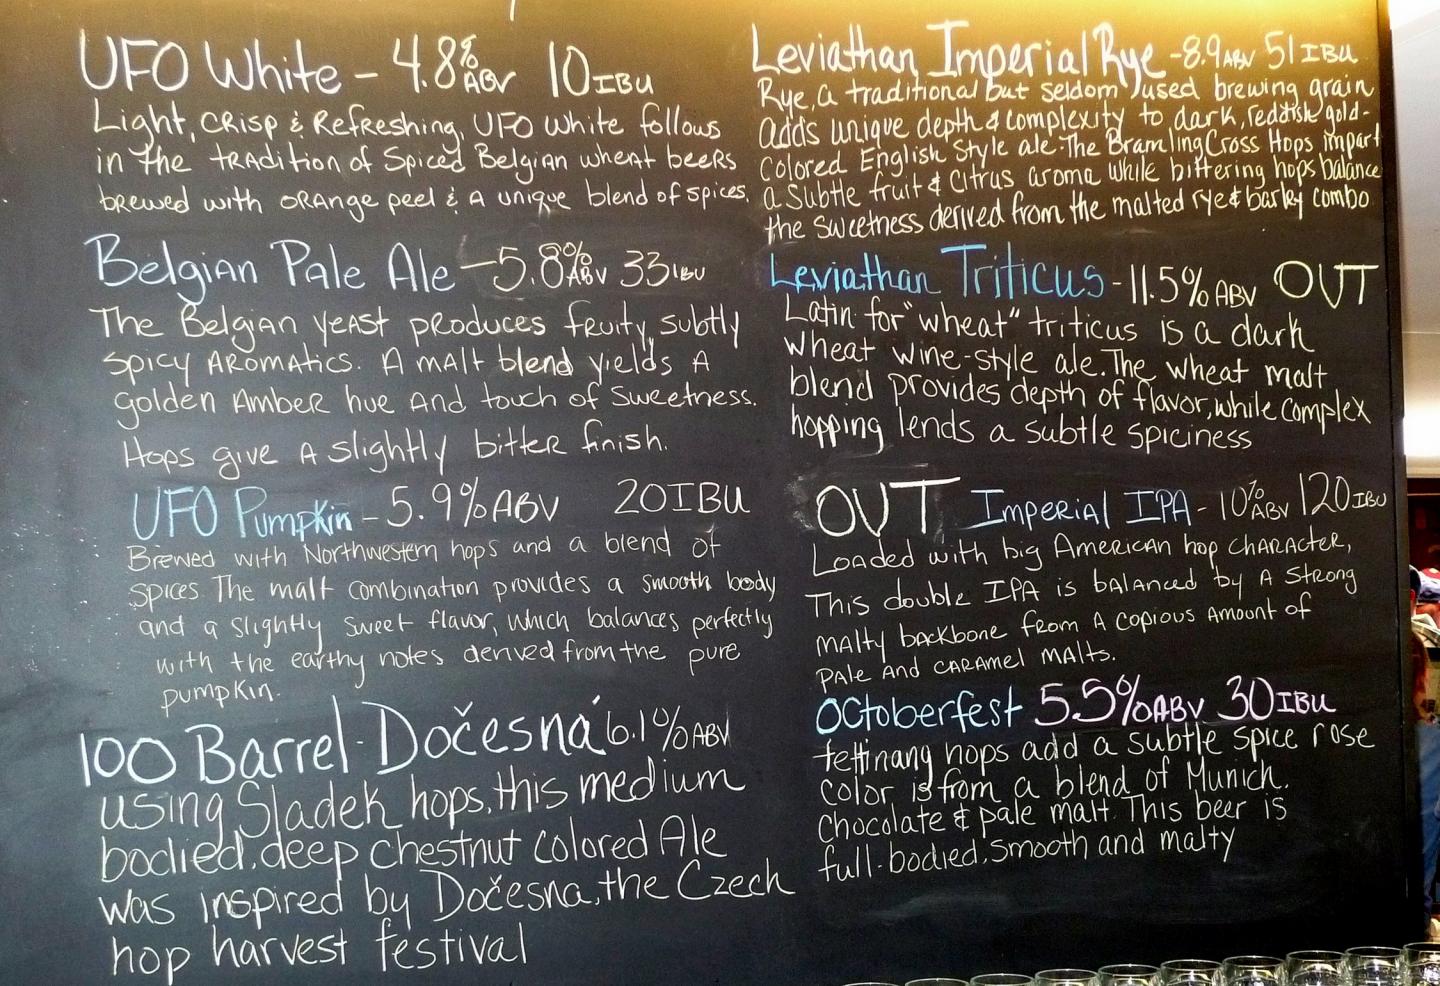 UFO White - 4.8% ABV 10 IBU
Light, CRISP & Refreshing, UFO White follows
in the tRADition of Spiced Belgian wheat beers
brewed with ORANge peel & A unique blend of spices.
Belgian Pale Ale - 5.8% ABV 33 IBU
The Belgian yeAST produces fruity, subtly
spicy AROMATICS. A malt blend yields A
golden Amber hue and touch of sweetness.
Hops give A slightly bitter finish.
UFO Pumpkin - 5.9% ABV 20 IBU
Brewed with Northwestern hops and a blend of
spices The malt combination provides a smooth body
and a slightly sweet flavor, which balances perfectly
with the earthy notes derived from the pure
pumpkin.
100 Barrel - Dočesná 6.1% ABV
using Sladek hops, this medium
bodied, deep chestnut colored Ale
was inspired by Dočesna, the Czech
hop harvest festival
Leviathan Imperial Rye - 8.9 ABV 51 IBU
Rye, a traditional but seldom used brewing grain
adds unique depth & complexity to dark, reddish gold-
colored English Style ale. The Bramling Cross Hops impart
a subtle fruit & citrus aroma while bittering hops balance
the sweetness derived from the malted rye & barley combo
Leviathan Triticus - 11.5% ABV OUT
Latin for "wheat" triticus is a dark
wheat wine-style ale. The wheat malt
blend provides depth of flavor, while complex
hopping lends a subtle spiciness
OUT Imperial IPA - 10% ABV 120 IBU
Loaded with big American hop character,
This double IPA is balanced by A Strong
malty backbone from A copious amount of
pale and caramel malts.
Octoberfest 5.5% ABV 30 IBU
tettinang hops add a subtle spice rose
color is from a blend of Munich.
chocolate & pale malt. This beer is
full-bodied, smooth and malty